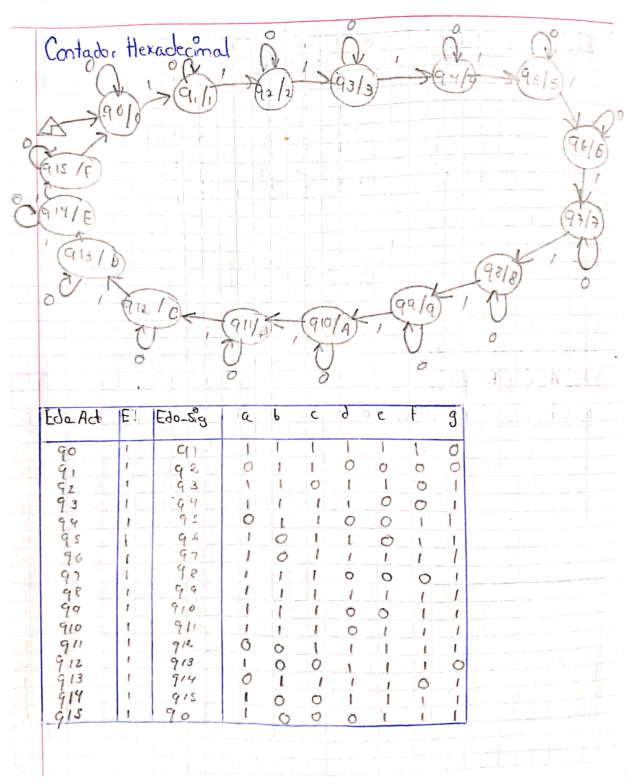 Contador Hexadecimal
0 0 0 0 0 0
q0/0 1 q1/1 1 q2/2 1 q3/3 1 q4/4 1 q5/5 1
0 q6/6 0
q15/F 1
0 q14/E q7/7
1 q13/D 1 q8/8 1 0
0 1 q12/C 1 q11/B 1 q10/A 1 q9/9 1 0
0 0 0 0
Edo Act E! Edo-Sig a b c d e f g
q0 1 q1 1 1 1 1 1 1 0
q1 1 q2 0 1 1 0 0 0 0
q2 1 q3 1 1 0 1 1 0 1
q3 1 q4 1 1 1 1 0 0 1
q4 1 q5 0 1 1 0 0 1 1
q5 1 q6 1 0 1 1 0 1 1
q6 1 q7 1 0 1 1 1 1 1
q7 1 q8 1 1 1 0 0 0 1
q8 1 q9 1 1 1 1 1 1 1
q9 1 q10 1 1 1 0 0 1 1
q10 1 q11 1 1 1 0 1 1 1
q11 1 q12 0 0 1 1 1 1 1
q12 1 q13 1 0 0 1 1 1 0
q13 1 q14 0 1 1 1 1 0 1
q14 1 q15 1 0 0 1 1 1 1
q15 1 q0 1 0 0 0 1 1 1